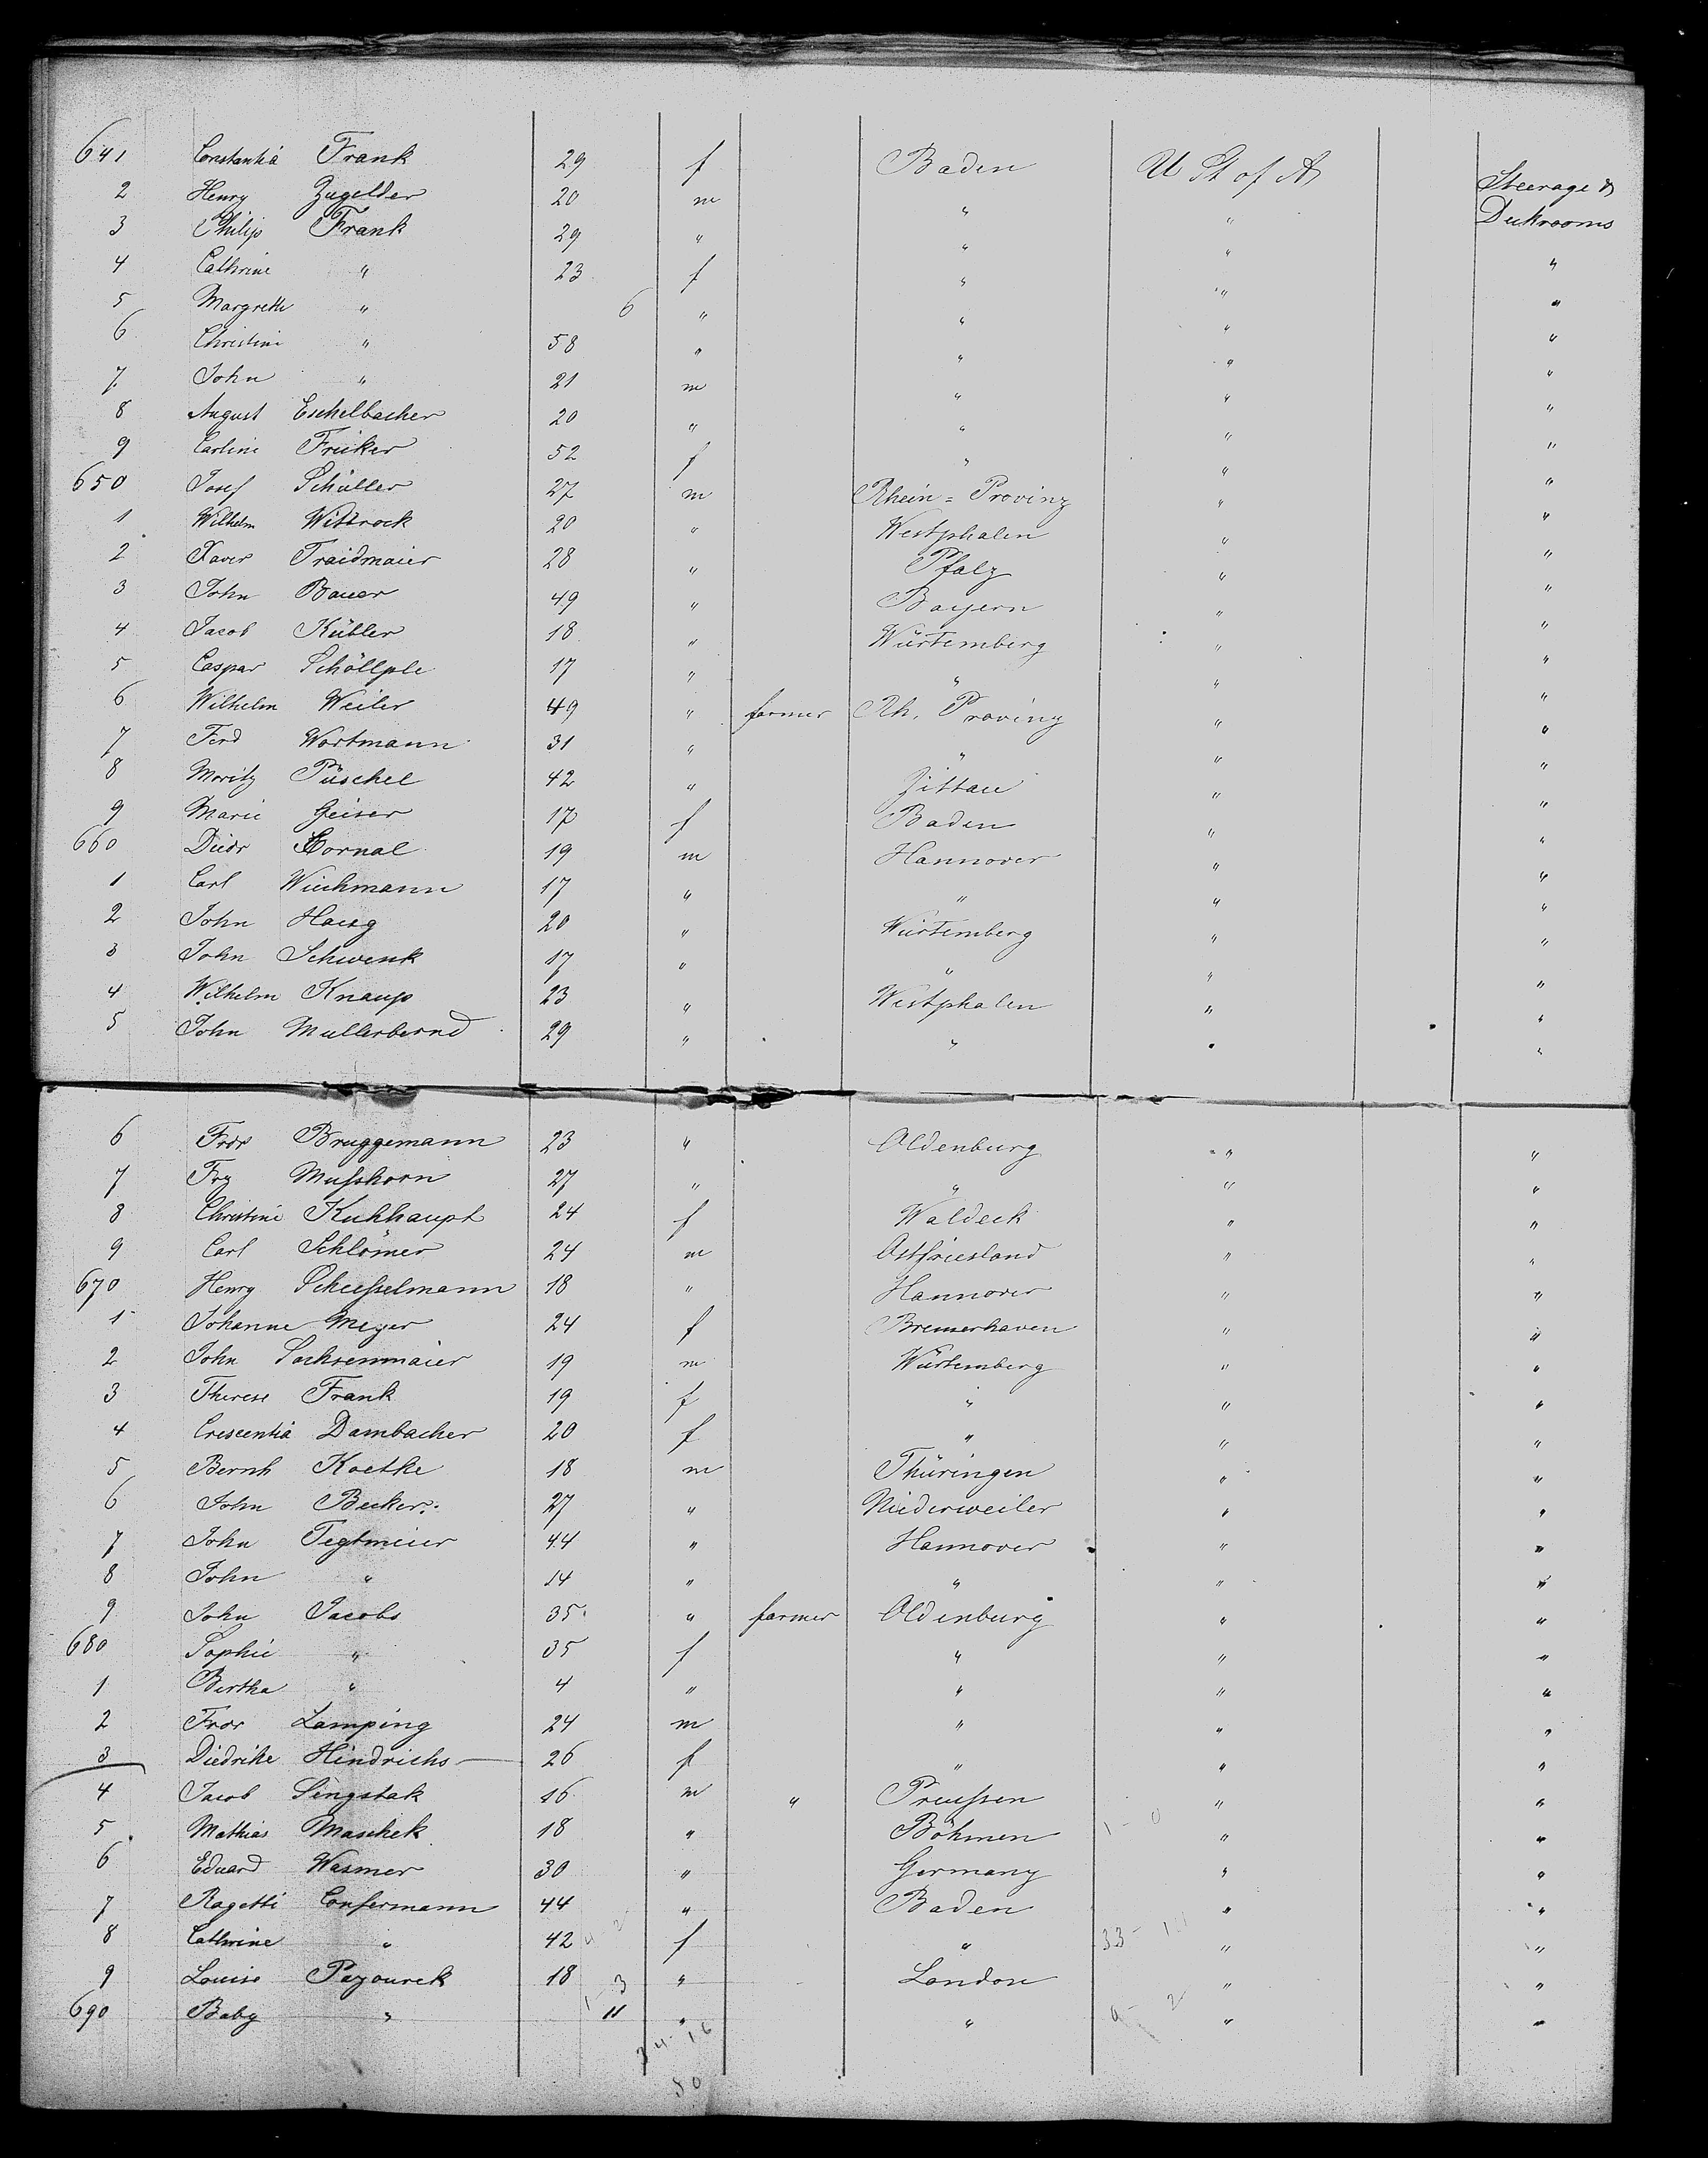 641 Constantia Frank 29 f Baden U St of A Steerage &
2 Henry Zugelder 20 m " " Deckrooms
3 Philip Frank 29 " " " "
4 Cathrine " 23 f " " "
5 Margreth " 6 " " " "
6 Christine " 58 " " " "
7 John " 21 m " " "
8 August Eschelbacher 20 " " " "
9 Carline Fricker 52 f " " "
650 Josef Schüller 27 m Rhein=Provinz " "
1 Wilhelm Wittrock 20 " Westphalen " "
2 Xaver Traidmaier 28 " Pfalz " "
3 John Bauer 49 " Bayern " "
4 Jacob Kübler 18 " Würtemberg " "
5 Caspar Schöllple 17 " " " "
6 Wilhelm Weiler 49 " farmer Rh. Provinz " "
7 Ferd Wortmann 31 " " " "
8 Moritz Püschel 42 " Zittau " "
9 Marie Geiser 17 f Baden " "
660 Diedr Cornal 19 m Hannover " "
1 Carl Wiechmann 17 " " " "
2 John Haug 20 " Würtemberg " "
3 John Schwenk 17 " " " "
4 Wilhelm Knaup 23 " Westphalen " "
5 John Mullerbernd 29 " " " "
6 Fror Bruggemann 23 " Oldenburg " "
7 Frz Musshorn 27 " " " "
8 Christine Kuhhaupt 24 f Waldeck " "
9 Carl Schlömer 24 m Ostfriesland " "
670 Henry Scheesselmann 18 " Hannover " "
1 Johanne Meyer 24 f Bremerhaven " "
2 John Sachsenmaier 19 m Würtemberg " "
3 Therese Frank 19 f " " "
4 Crescentia Dambacher 20 f " " "
5 Bernh Koethe 18 m Thüringen " "
6 John Becker 27 " Niederweiler " "
7 John Tegtmeier 44 " Hannover " "
8 John " 14 " " " "
9 John Jacobs 35 " farmer Oldenburg " "
680 Sophie " 35 f " " "
1 Bertha " 4 " " " "
2 Fror Lamping 24 m " " "
3 Diedrike Hindrichs 26 f " " "
4 Jacob Singstak 16 m " Preussen " "
5 Mathias Maschek 18 " Böhmen 1-0 " "
6 Eduard Wasmer 30 " Germany " "
7 Ragetti Confermann 44 " Baden " "
8 Cathrine " 42 f " 33- " "
9 Louise Pazourek 18 3 " London " "
690 Baby " 11 " " " "
34-16
50